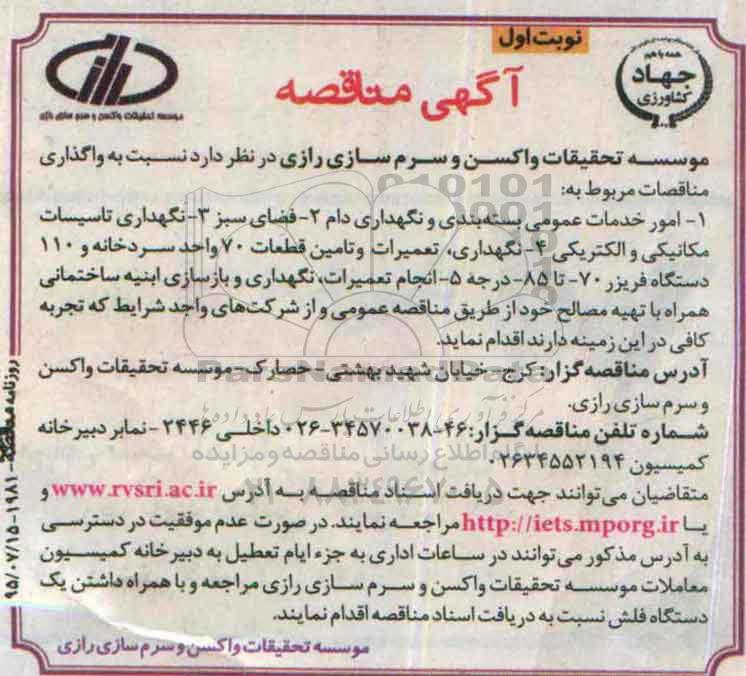 نوبت اول
همه با هم
جهاد
کشاورزی
موسسه تحقیقات واکسن و سرم سازی رازی
آگهی مناقصه
موسسه تحقیقات واکسن و سرم سازی رازی در نظر دارد نسبت به واگذاری
مناقصات مربوط به:
۱- امور خدمات عمومی بسته‌بندی و نگهداری دام ۲- فضای سبز ۳- نگهداری تاسیسات
مکانیکی و الکتریکی ۴- نگهداری، تعمیرات وتامین قطعات ۷۰ واحد سردخانه و ۱۱۰
دستگاه فریزر ۷۰- تا ۸۵- درجه ۵- انجام تعمیرات، نگهداری و بازسازی ابنیه ساختمانی
همراه با تهیه مصالح خود از طریق مناقصه عمومی و از شرکت‌های واجد شرایط که تجربه
کافی در این زمینه دارند اقدام نماید.
آدرس مناقصه گزار: کرج- خیابان شهید بهشتی - حصارک- موسسه تحقیقات واکسن
و سرم سازی رازی.
شماره تلفن مناقصه گزار: ۴۶-۳۴۵۷۰۰۳۸-۰۲۶ داخلی ۲۴۴۶ - نمابر دبیرخانه
کمیسیون ۰۲۶۳۴۵۵۲۱۹۴
متقاضیان می‌توانند جهت دریافت اسناد مناقصه به آدرس www.rvsri.ac.ir و
یا http://iets.mporg.ir مراجعه نمایند. در صورت عدم موفقیت در دسترسی
به آدرس مذکور می‌توانند در ساعات اداری به جزء ایام تعطیل به دبیرخانه کمیسیون
معاملات موسسه تحقیقات واکسن و سرم سازی رازی مراجعه و با همراه داشتن یک
دستگاه فلش نسبت به دریافت اسناد مناقصه اقدام نمایند.
موسسه تحقیقات واکسن و سرم سازی رازی
روزنامه مناقصه - ۱۹۸۱ - ۹۵/۰۷/۱۵
ParsNamadData
مرکز فرآوری اطلاعات پارس نماد داده ها
پایگاه اطلاع رسانی مناقصه و مزایده